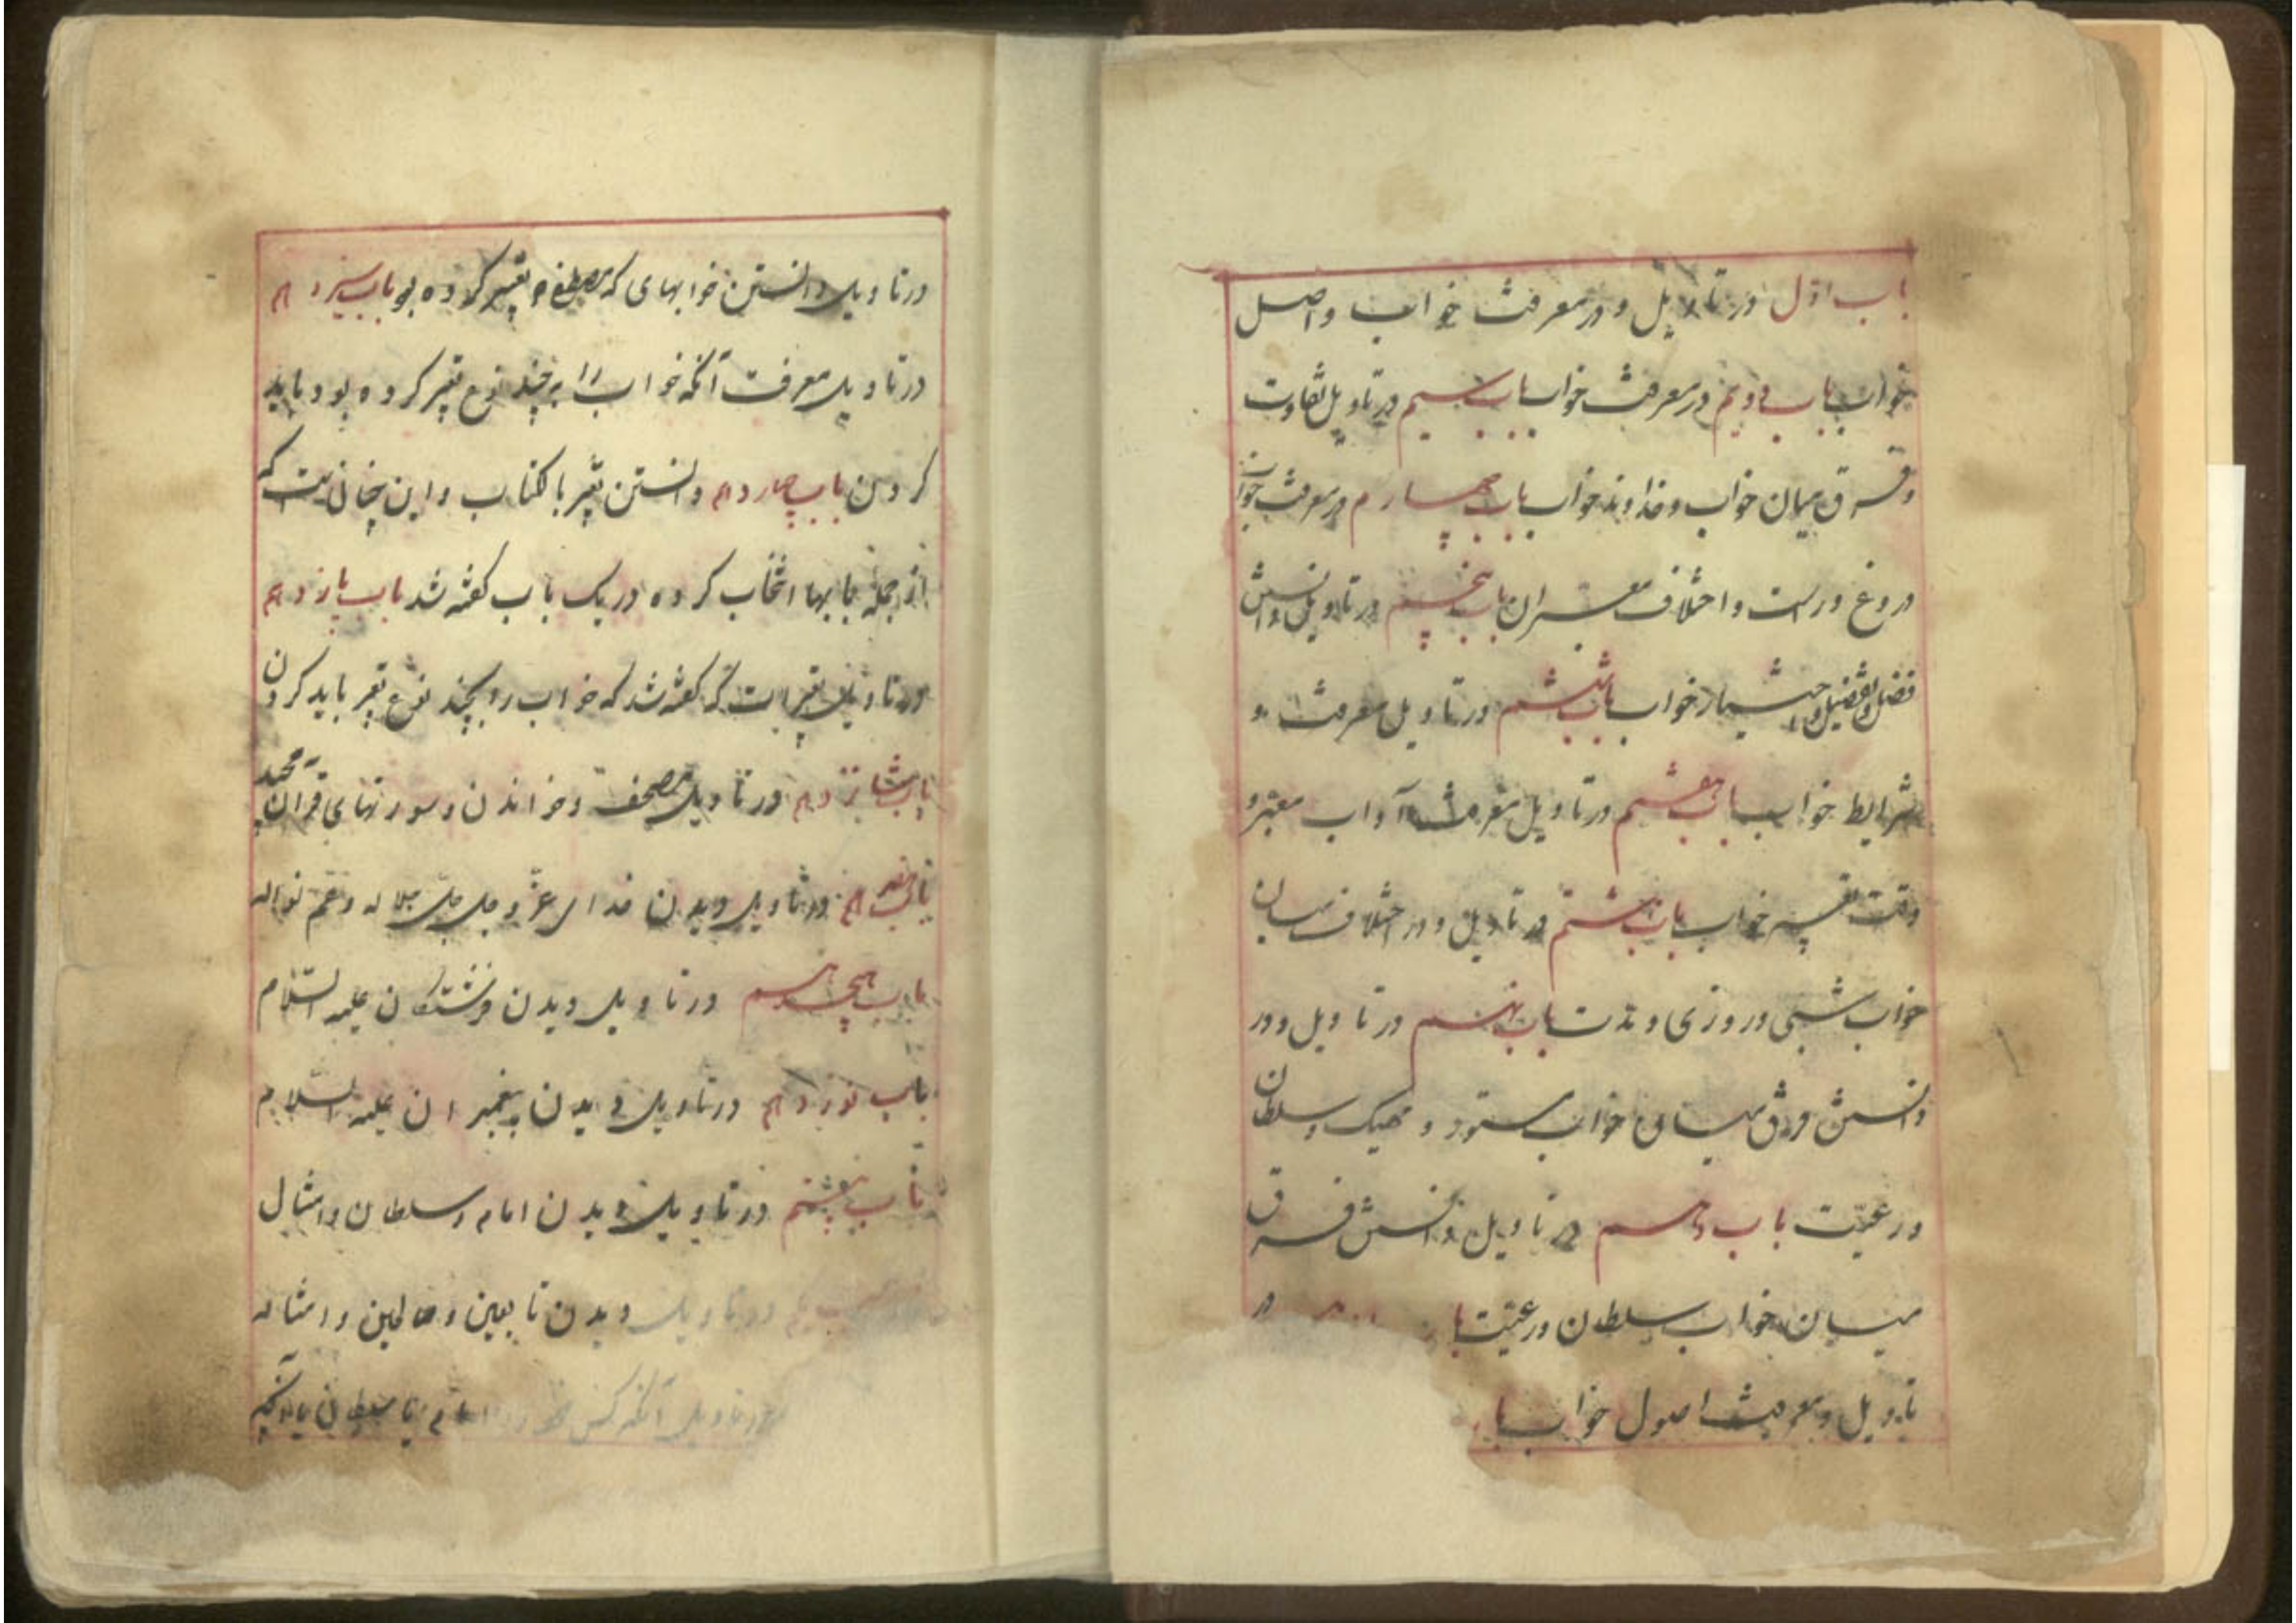 باب اول در تاویل و در معرفت خواب و اصل
خواب باب دویم در معرفت خواب باب سیم در تاویل تفاوت
و فرق میان خواب و خداوند خواب باب چهارم در معرفت خواب
دروغ و راست و اختلاف معبران باب پنجم در تاویل دانستن
فضل و تفضیل و خواب باب ششم در تاویل معرفت و
شرایط خواب باب هفتم در تاویل معرفت آداب معبر و
وقت تعبیر خواب باب هشتم در تاویل و در اختلاف میان
خواب شبی و روزی و مدت باب نهم در تاویل و در
دانستن فرق میان خواب ستور و سلطان
و رعیّت باب دهم در تاویل دانستن فرق
میان خواب سلطان و رعیّت با در
تاویل و معرفت اصول خواب با
در تاویل دانستن خوابهای که مصطفی تعبیر کرده بو باب سیزدهم
در تاویل معرفت آنکه خواب را بر چند نوع تعبیر کرده بود باید
کردن باب چهاردهم دانستن تعبیر با لکتاب و این چنانست که
از جمله بابها انتخاب کرده در یک باب گفته شد باب پانزدهم
در تاویل تعبیر است که گفته شد که خواب را بچند نوع تعبیر باید کردن
باب شانزدهم در تاویل مصحف و خواندن و سورتهای قرآن مجید
باب هفدهم در تاویل دیدن خدای عزّ و جل جلّ جلاله و عمّ نواله
باب هیجدهم در تاویل دیدن فرشتگان علیهم السّلام
باب نوزدهم در تاویل دیدن پیغمبران علیهم السّلام
باب بیستم در تاویل دیدن امام و سلطان و امثال
در تاویل دیدن تابعین و صالحین و امثاله
در تاویل آنکه کسی امام یا سلطان یا